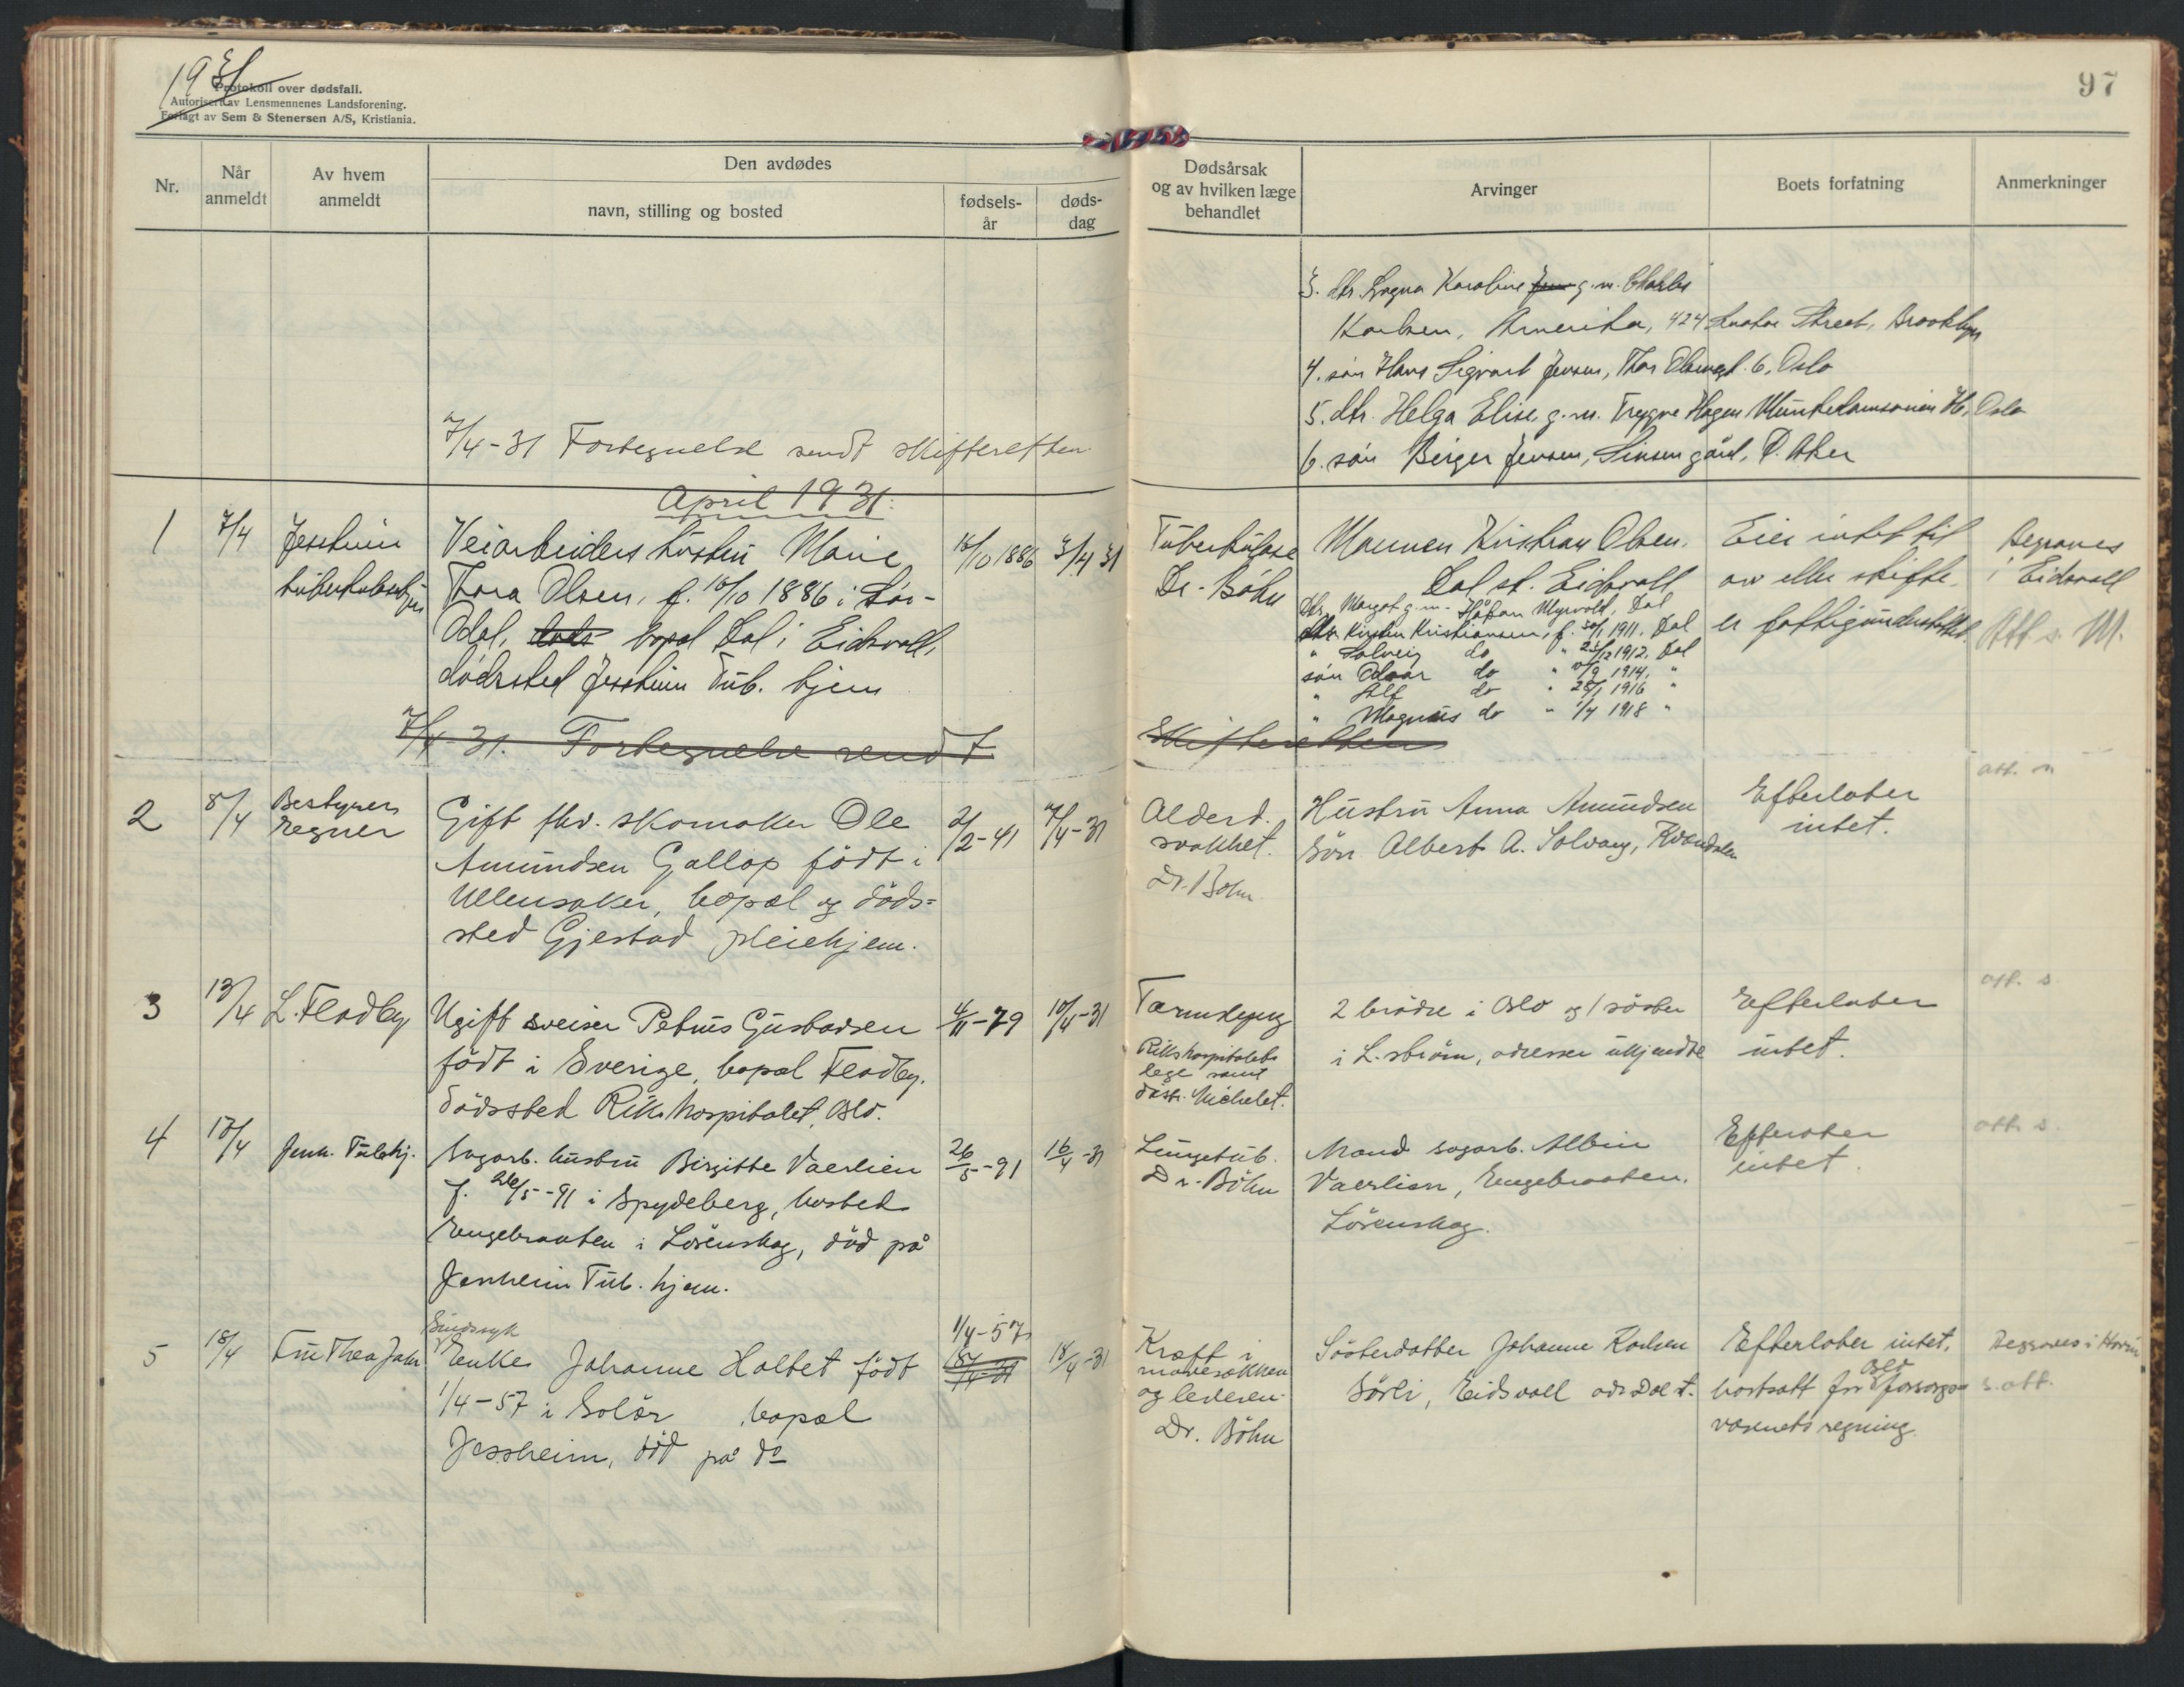 1931
Protokoll over dødsfall.
Autorisert av Lensmennenes Landsforening.
Forlagt av Sem & Stenersen A/S, Kristiania.
97
Nr.
Når anmeldt
Av hvem anmeldt
Den avdødes
navn, stilling og bosted
fødsels-år
døds-dag
Dødsårsak og av hvilken læge behandlet
Arvinger
Boets forfatning
Anmerkninger
3. dtr. Ragna Karoline g.m. Charles
Karlsen, Amerika, 424 Street, Brooklyn
4. søn Hans Sigvart Jensen, Thor Olsensgt. 6, Oslo
5. dtr. Helga Elise, g.m. Trygve Hagen Oslo
6. søn Birger Jensen, Sinsen gård, Ø. Aker
7/4-31 Fortegnelse sendt skifteretten
April 1931.
1
7/4
Jessheim
tuberkulosehjem
Veiarbeiders hustru Marie
Thora Olsen, f. 10/10 1886 i Sør-
Odal, bopæl Dal i Eidsvoll,
dødssted Jessheim Tub. hjem
/10 1886
3/4 31
Tuberkulose
Dr. Bøhn
Mannen Kristian Olsen.
Dal st. Eidsvoll
Dtr. Margot g.m. Håkon Myrvold, Dal
dtr. Kirsten Kristiansen, f. 30/1 1911. Dal
" Solveig do " 25/12 1912. Dal
søn Odvar do " 10/9 1914. "
" Alf do " 28/1 1916 "
" Magnus do " 1/4 1918 "
Eier intet til
arv eller skifte.
er fattigunderstøttet.
Begraves
i Eidsvoll
Att s. M.
7/4-31. Fortegnelse sendt
skifteretten
2
8/4
Bestyrer
Regner
Gift fhv. skomaker Ole
Amundsen Gallop født i
Ullensaker, bopæl og døds-
sted Gjestad pleiehjem.
2/2-41
7/4-31
Alderd.
svakhet.
Dr. Bøhn
Hustru Anna Amundsen
Søn Albert A. Solvang, Kvændalen
Efterlater
intet.
att. m
3
13/4
L. Fladby
Ugift sveiser Petrus Gustavsen
født i Sverige, bopæl Fladby.
Dødssted Rikshospitalet, Oslo.
4/11-79
10/4-31
Tarmslyng
Rikshospitalets
lege samt
distr. Michelet.
2 brødre i Oslo og 1 søster
i L.strøm, adresser ukjendte
Efterlater
intet.
att. s.
4
17/4
Jessh. Tubhj.
Sagarb. hustru Birgitte Vaerlien
f. 26/5-91 i Spydeberg, bosted
Engebraaten i Lørenskog, død på
Jessheim Tub. hjem.
26/5-91
16/4-31
Lungetub.
Dr. Bøhn
Mand sagarb. Albin
Vaerlien, Engebraaten.
Lørenskog.
Efterlater
intet.
att. s.
5
18/4
Fru Thea Jahr
Sindssyk
Enke Johanne Holtet født
1/4-57 i Solør bopæl
Jessheim, død på do
1/4-57
18/4-31
18/4-31
Kræft i
mavesækken
og leveren.
Dr. Bøhn
Søsterdatter Johanne Karlsen
Sørli, Eidsvoll adr. Dal st.
Efterlater intet,
bortsatt for Oslo forsorgs-
væsnets regning.
Begraves i Hovin
s. att.